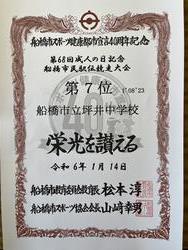 船橋市スポーツ健康都市宣言40周年記念
第68回成人の日記念
船橋市民駅伝競走大会
第7位 1°08'23
船橋市立坪井中学校
栄光を讃える
令和6年1月14日
船橋市教育委員会教育長 松本淳
船橋市スポーツ協会会長 山崎幸男